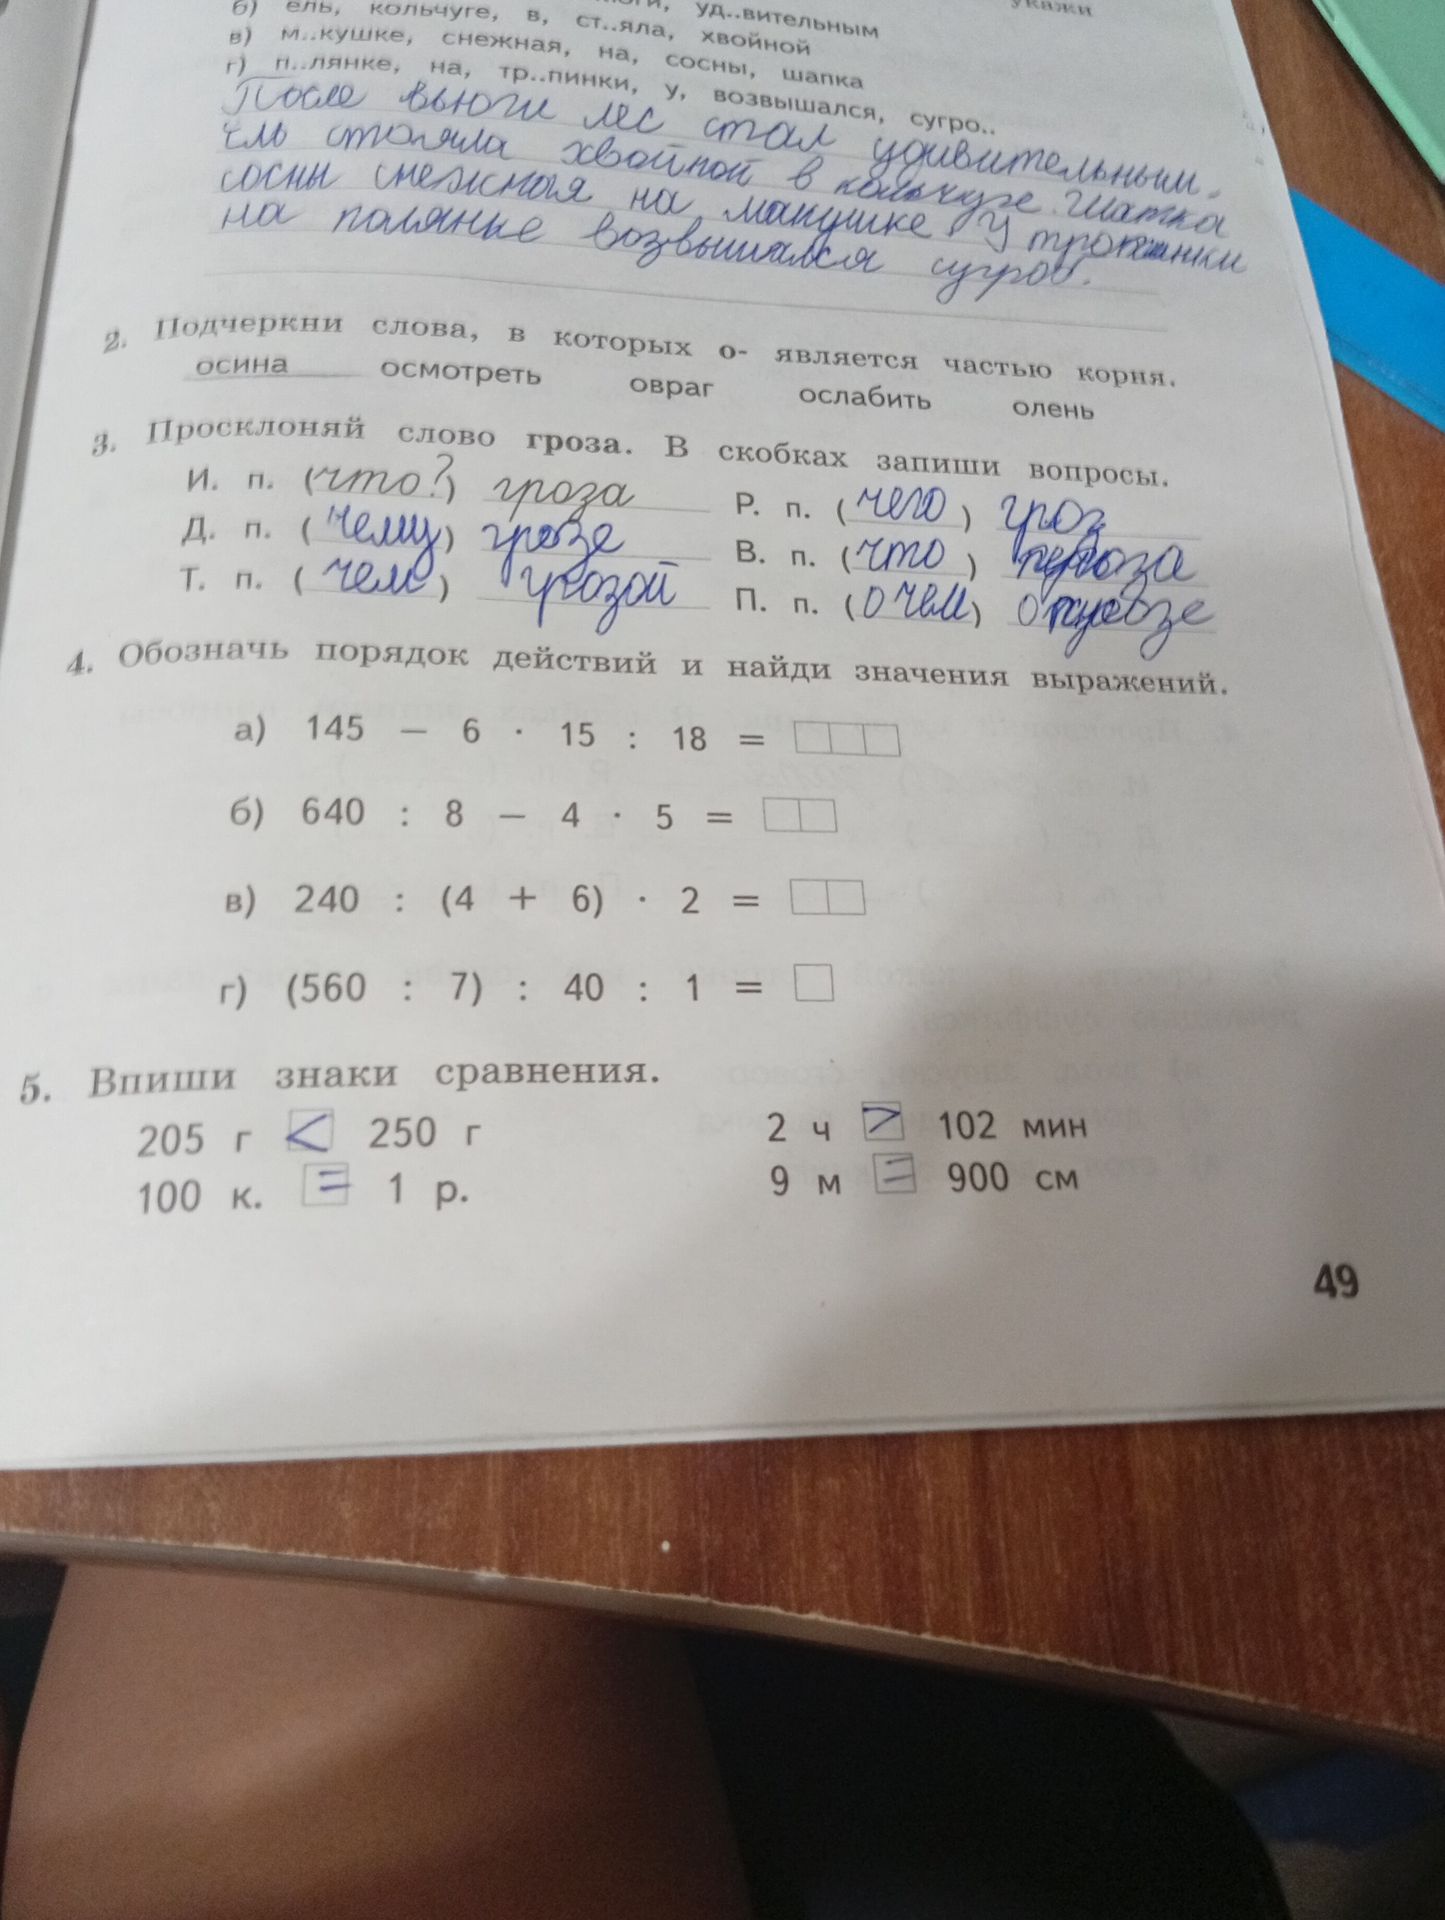 укажи
уд..вительным
б) ель, кольчуге, в, ст..яла, хвойной
в) м..кушке, снежная, на, сосны, шапка
г) п..лянке, на, тр..пинки, у, возвышался, сугро..
После вьюги лес стал удивительным.
ель стояла хвойной в кольчуге. Шапка
сосны снежная на макушке У тропинки
на полянке возвышался сугроб.
2. Подчеркни слова, в которых о- является частью корня.
осина осмотреть овраг ослабить олень
3. Просклоняй слово гроза. В скобках запиши вопросы.
И. п. (что?) гроза Р. п. (чего) гроз
Д. п. (чему) грозе В. п. (что) гроза
Т. п. (чем) грозой П. п. (о чем) о грозе
4. Обозначь порядок действий и найди значения выражений.
а) 145 − 6 · 15 : 18 =
б) 640 : 8 − 4 · 5 =
в) 240 : (4 + 6) · 2 =
г) (560 : 7) : 40 : 1 =
5. Впиши знаки сравнения.
205 г < 250 г 2 ч > 102 мин
100 к. = 1 р. 9 м = 900 см
49